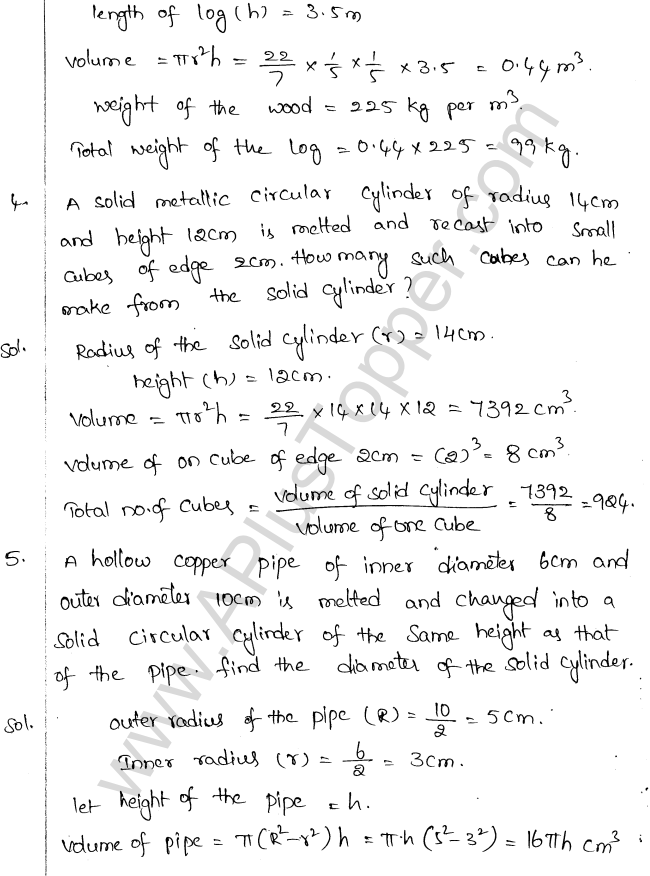 length of log (h) = 3.5m
volume = πr²h = 22/7 × 1/5 × 1/5 × 3.5 = 0.44 m³.
weight of the wood = 225 kg per m³.
Total weight of the log = 0.44 × 225 = 99 kg.
4. A solid metallic circular cylinder of radius 14cm
and height 12cm is melted and recast into small
cubes of edge 2cm. How many such cubes can be
make from the solid cylinder?
Sol. Radius of the solid cylinder (r) = 14cm.
height (h) = 12cm.
Volume = πr²h = 22/7 × 14 × 14 × 12 = 7392 cm³.
volume of on cube of edge 2cm = (2)³ = 8 cm³.
Total no.of cubes = volume of solid cylinder / volume of one cube = 7392/8 = 924.
5. A hollow copper pipe of inner diameter 6cm and
outer diameter 10cm is melted and changed into a
solid circular cylinder of the same height as that
of the pipe. find the diameter of the solid cylinder.
Sol. outer radius of the pipe (R) = 10/2 = 5cm.
Inner radius (r) = 6/2 = 3cm.
let height of the pipe = h.
volume of pipe = π(R²-r²)h = π.h (5²-3²) = 16πh cm³
www.APlusTopper.com